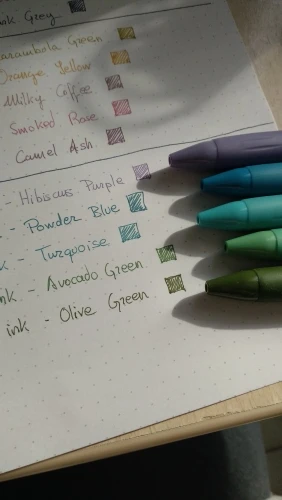 nk Grey
Carambola Green
Orange Yellow
Milky Coffee
Smoked Rose
Camel Ash
- Hibiscus Purple
- Powder Blue
k - Turquoise
nk - Avocado Green
ink - Olive Green